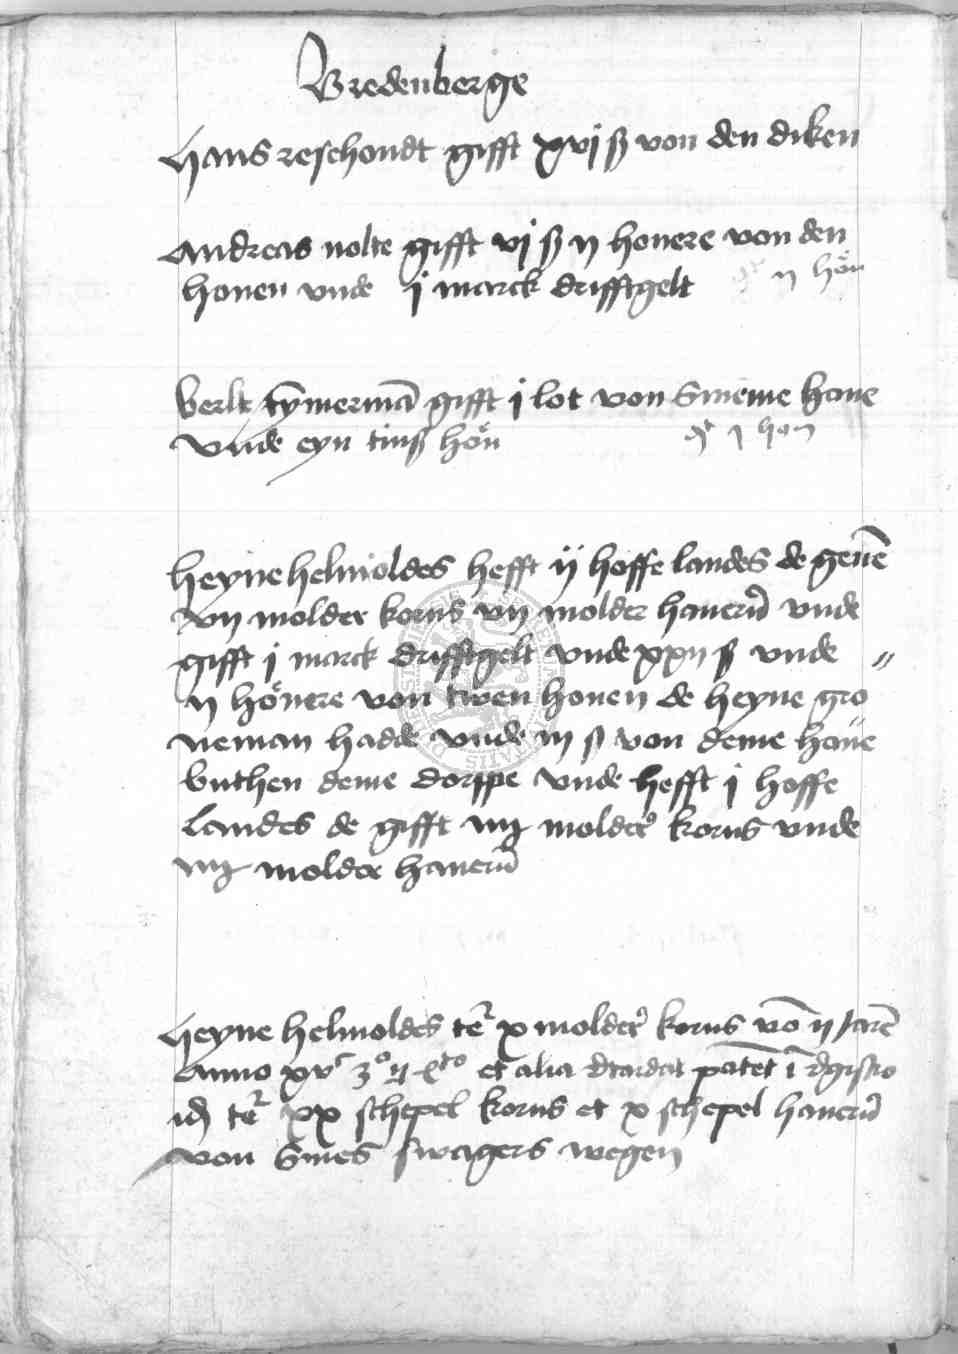 Bredenberge
Hans reschondt gifft xvj ß von den diken
Andreas nolte gifft vj ß ij honere von den
honen vnde j marck drifftgelt ij hön
Berlt tymermā gifft j lot von sineme houe
vnde eyn tinß hön dt j hon
Heyne helmoldes hefft ij hoffe landes de geuē
vij molder korns vij molder hauerū vnde
gifft j marck drifftgelt vnde xxij ß vnde
ij hönere von twen houen de heyne gro
neman hadde vnde iij ß von deme houe
buthen deme dorppe vnde hefft j hoffe
Landes de gifft molder korns vnde
molder hauerū
Heyne helmoldes tꝫ x molder korns vō ij Jarē
Anno xvᶜ et alia patet ī
idē tꝫ xx schepel korns et x schepel hauerū
von sines swagers wegen